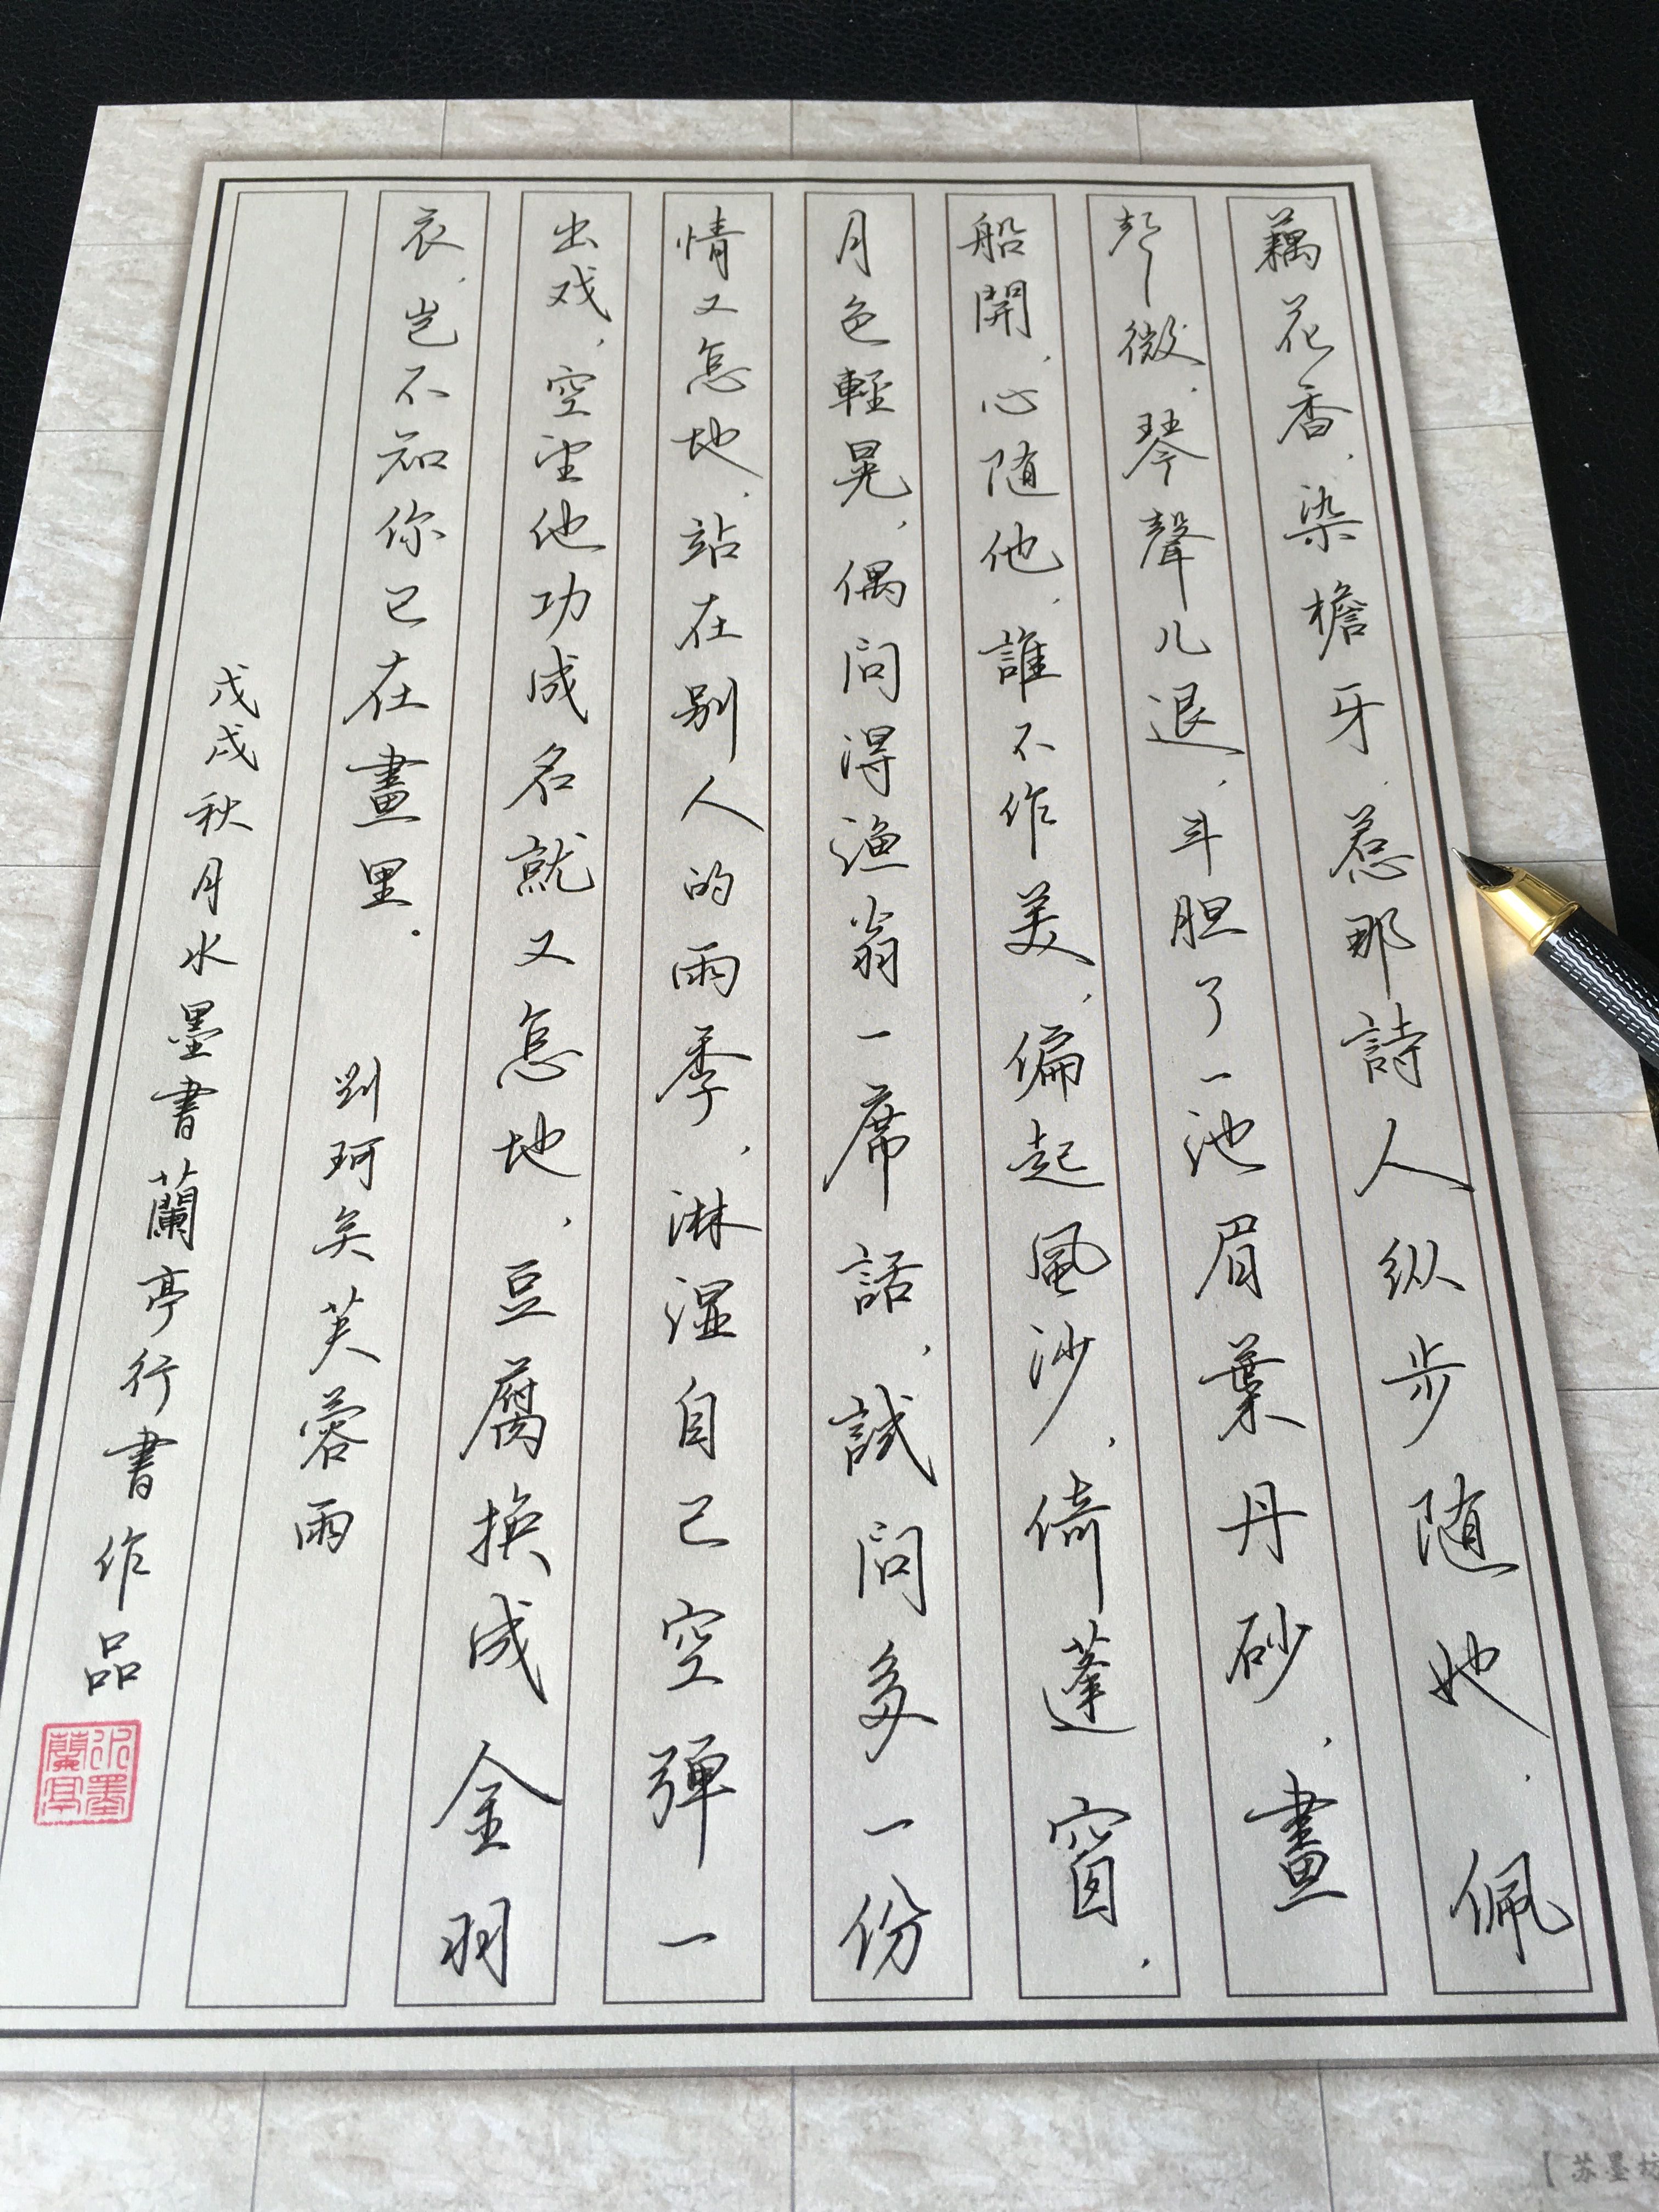 藕花香，染檐牙，惹那詩人纵步随她，佩
声微，琴聲儿退，斗胆了一池眉葉丹砂，畫
船開，心随他，誰不作美，偏起風沙，倚蓬窗，
月色輕晃，偶问得渔翁一席話，試问多一份
情又怎地，站在别人的雨季，淋湿自己空弹一
出戏，空望他功成名就又怎地，豆腐换成金羽
衣，岂不知你已在畫里． 刘珂矣芙蓉雨
戊戌秋月水墨書蘭亭行書作品
水墨蘭亭
【苏墨坊